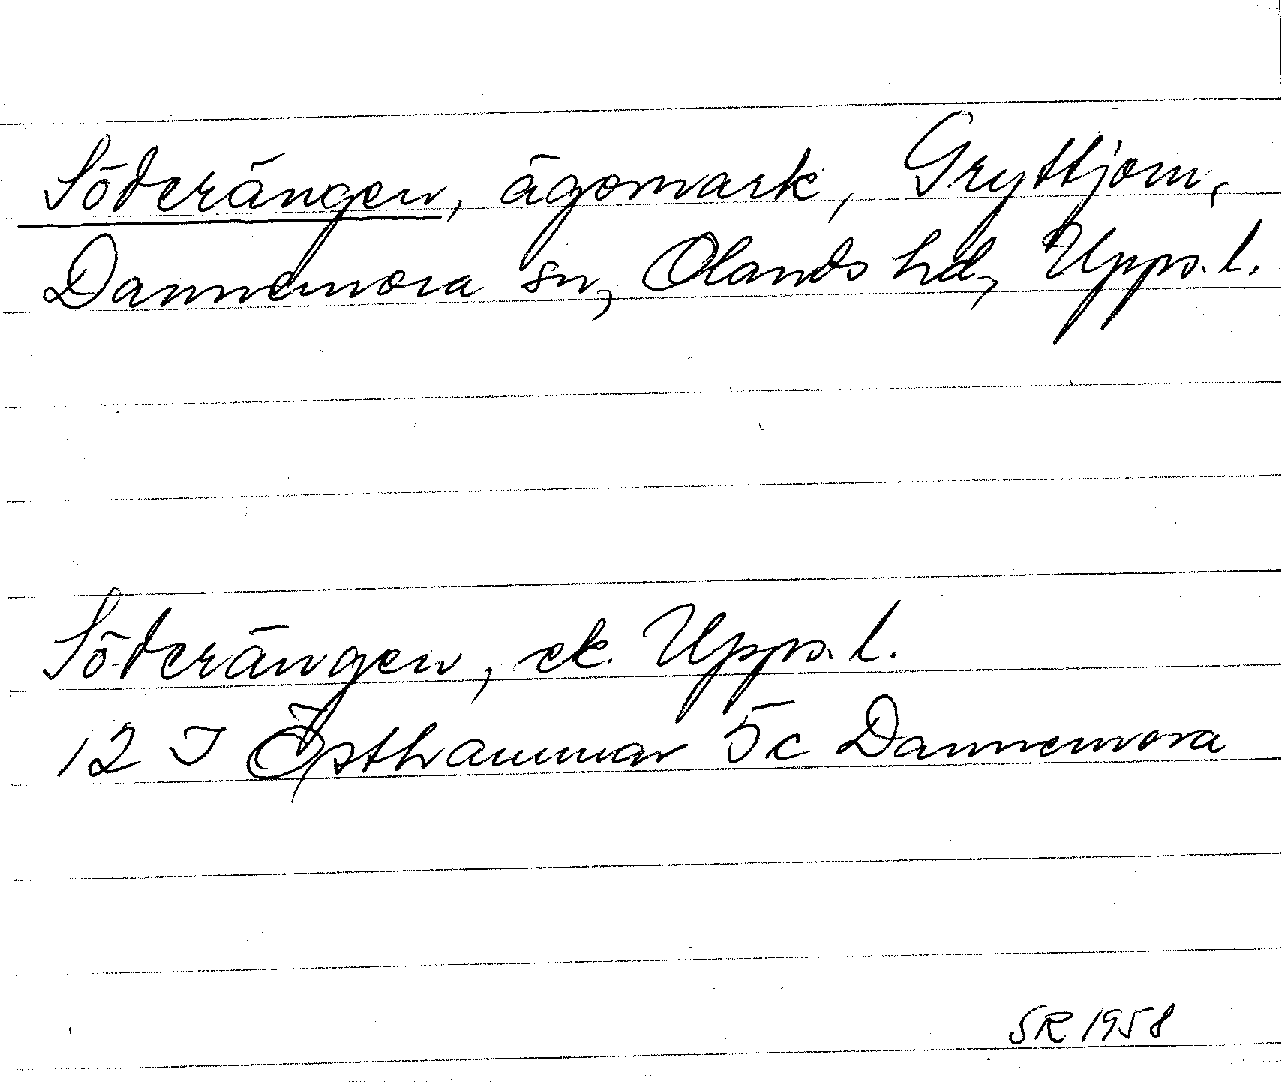 Söderängen, ägomark, Gryttjom,
Dannemora sn, Olands hd, Upps. l.
Söderängen, ek. Upps. l.
12 I Östhammar 5c Dannemora
SR 1958